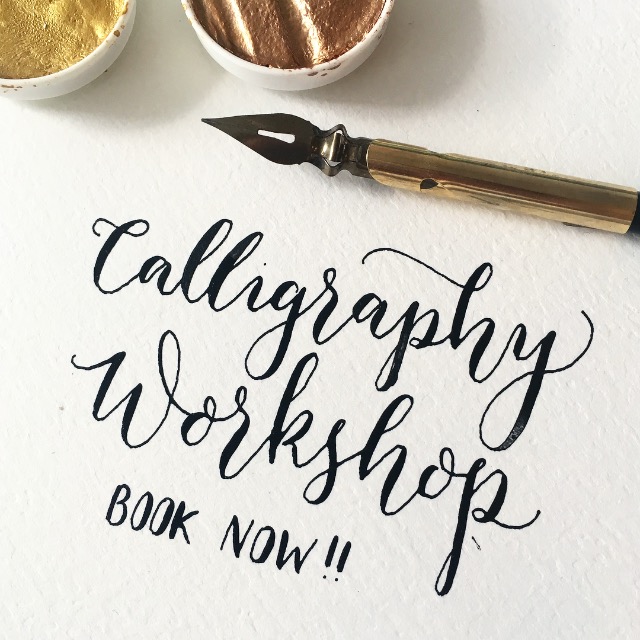 Calligraphy
Workshop
BOOK NOW!!